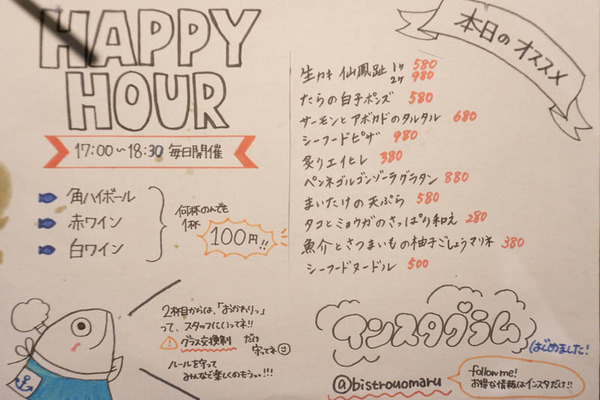 HAPPY
HOUR
17:00〜18:30 毎日開催
角ハイボール
赤ワイン
白ワイン
何杯のんでも
1杯
100円!!
2杯目からは、「おかわりっ」
って、スタッフにいってネ!!
グラス交換制 だけ
守ってネ
ルールを守って
みんなで楽しくのもうっ...!!!
本日のオススメ
生カキ 仙鳳趾 1ケ 580
2ケ 980
たらの白子ポンズ 580
サーモンとアボカドのタルタル 680
シーフードピザ 980
炙りエイヒレ 380
ペンネゴルゴンゾーラグラタン 880
まいたけの天ぷら 580
タコとミョウガのさっぱり和え 280
魚介とさつまいもの柚子ごしょうマリネ 380
シーフードヌードル 500
インスタグラム
はじめました!
@bistrouomaru
follow me!
お得な情報はインスタだけ!!